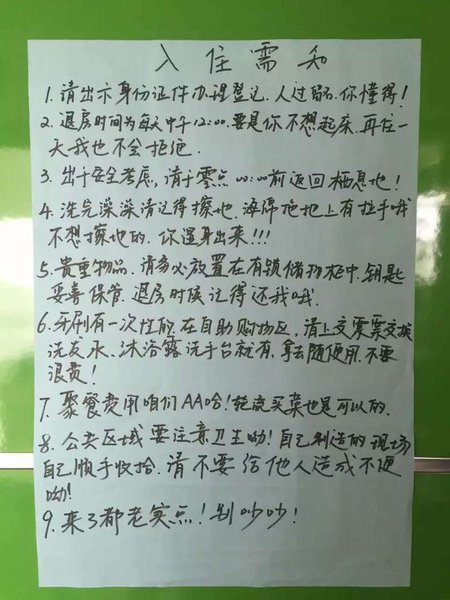 入住需知
1. 请出示身份证件办理登记. 人过留名. 你懂得!
2. 退房时间为每天中午12:00. 要是你不想起床. 再住一
天我也不会拒绝.
3. 出于安全考虑, 请于零点 00:00前返回栖息地!
4. 洗完澡澡请记得擦地. 海绵拖地上有拉手哦
不想擦地的. 你湿身出来!!!
5. 贵重物品. 请务必放置在有锁储物柜中. 钥匙
妥善保管. 退房时候记得还我哦.
6. 牙刷有一次性的. 在自助购物区, 请上交票票交换
洗发水. 沐浴露洗手台就有. 拿去随便用. 不要
浪费!
7. 聚餐费用咱们AA哈! 轮流买菜也是可以的.
8. 公共区域要注意卫生呦! 自己制造的现场
自己顺手收拾. 请不要给他人造成不便
呦!
9. 来了都老实点! 别吵吵!